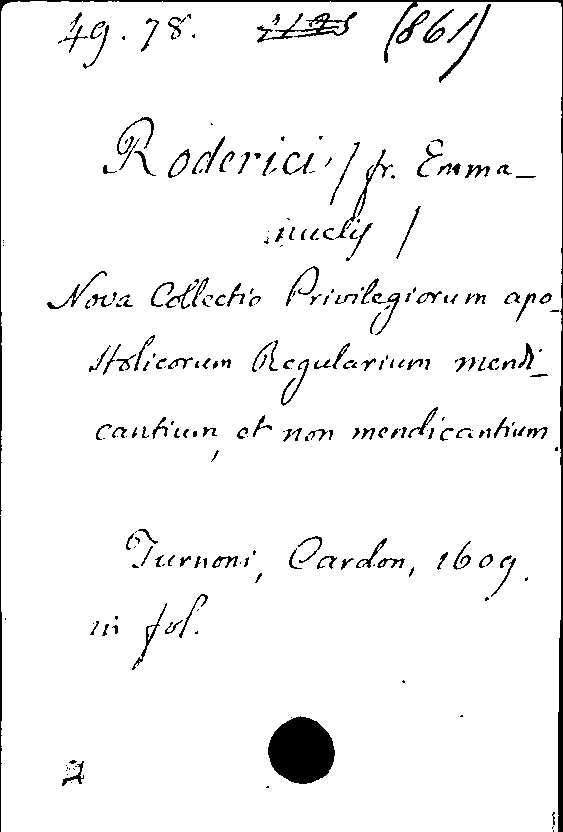 49. 78. (861)
Roderici / fr. Emma-
nuelis /
Nova Collectio Privilegiorum apo-
stolicorum Regularium mendi-
cantium, et non mendicantium.
Turnoni, Cardon, 1609.
in fol.